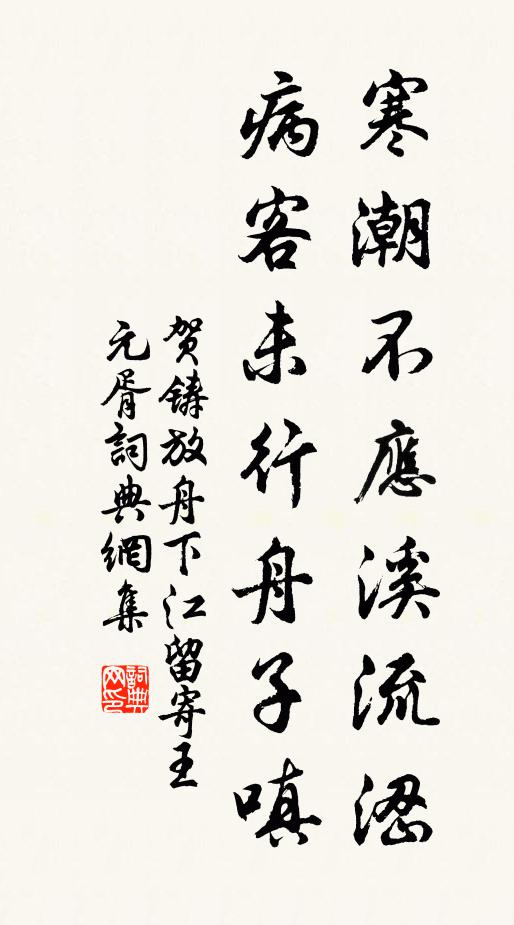 寒潮不應溪流澀
病客未行舟子嗔
賀鑄放舟下江留寄王
元胥詞典網集
詞典
网印